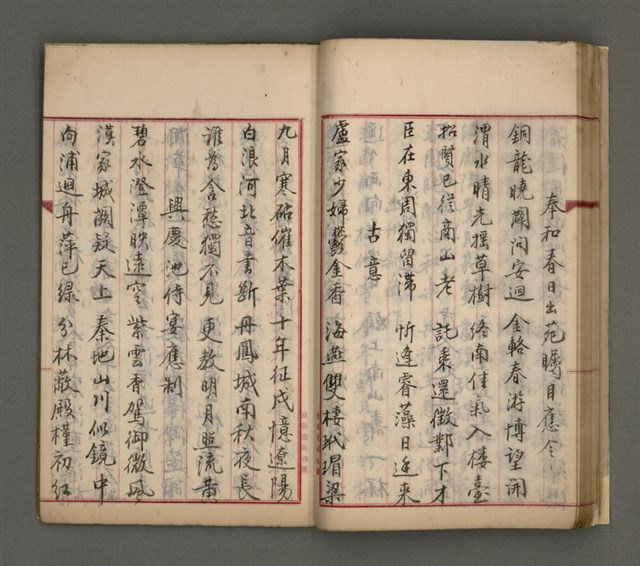 奉和春日出苑矚目應令
銅龍曉闢問安迴 金輅春游博望開
渭水晴光搖草樹 終南佳氣入樓臺
招賢已從商山老 託乘還徵鄴下才
臣在東周獨留滯 忻逢睿藻日邊來
古意
盧家少婦鬱金香 海燕雙棲玳瑁梁
九月寒砧催木葉 十年征戍憶遼陽
白浪河北音書斷 丹鳳城南秋夜長
誰為含愁獨不見 更教明月照流黃
興慶池侍宴應制
碧水澄潭映遠空 紫雲香駕御微風
漢家城闕疑天上 秦地山川似鏡中
向浦迴舟萍已綠 分林蔽殿槿初紅